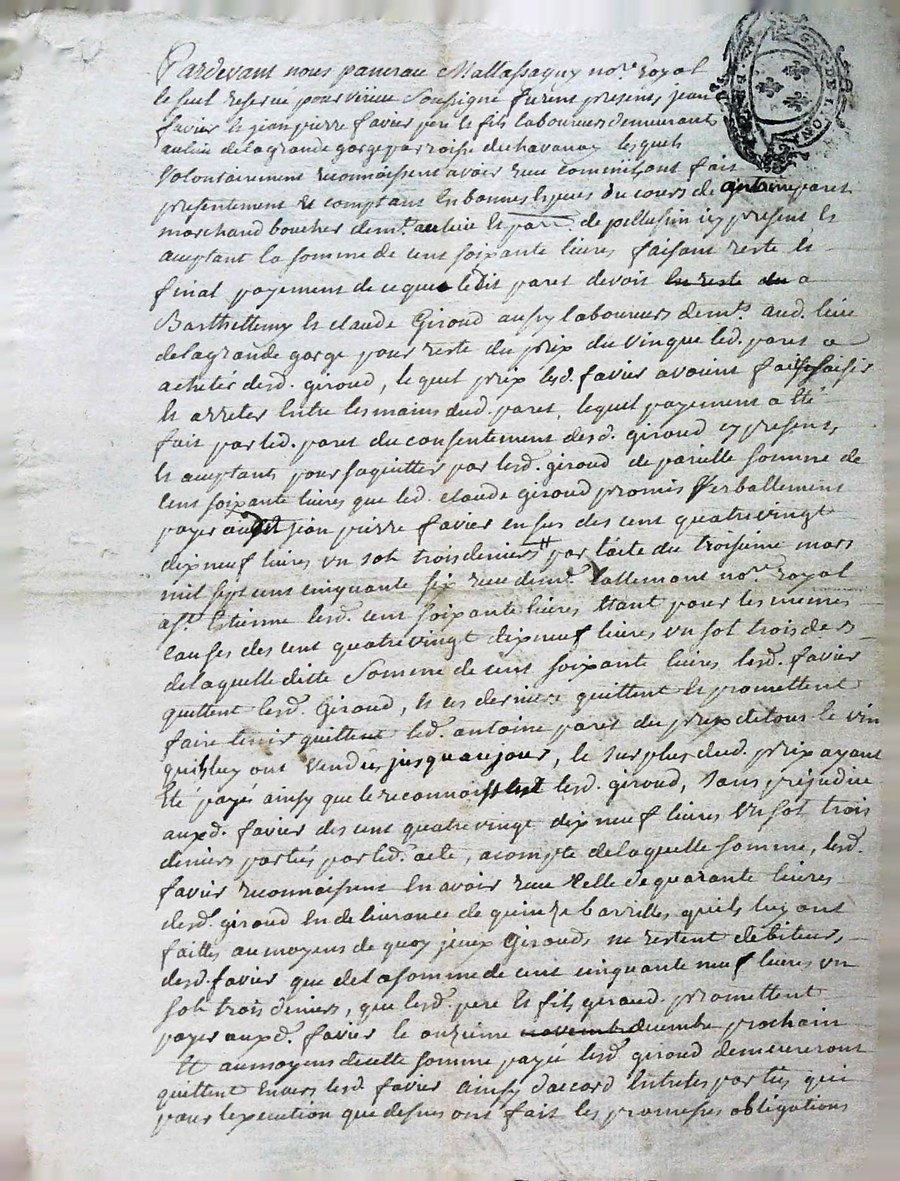 Pardevant nous pancrau Mallassagny no.re Royal
le seul reservé pour virieu soussigné furent presents, jean
favier et jean pierre favier pere et fils laboureurs demeurant
au lieu de la grande gorge parroisse de chavanay lesquels
volontairement reconnoissent avoir receu comme ils ont fait
presentement et comptant en bonnes especes du cours de antoine paret
marchand boucher dem.t au lieu et parr.e de pellussin icy present et
acceptant la somme de cent soixante livres faisant reste et
final payement de ce que ledit paret devoit en reste du a
Barthellemy et claude Giroud aussy laboureurs dem.ts aud. lieu
de la grande gorge pour reste du prix du vin que led. paret a
acheté desd. giroud, lequel prix lesd. favier avoient fait saisir
et arreter entre les mains dud. paret, lequel payement a eté
fait par led. paret du consentement desd. giroud icy presents
et acceptants pour s'aquitter par lesd. giroud de pareille somme de
cent soixante livres que led. claude giroud promis verballement
payer audit jean pierre favier en sus des cent quatre vingt
dix neuf livres un sol trois deniers par l'acte du troisieme mars
mil sept cent cinquante six receu dem.e Lallemant no.re royal
a s.t Estienne lesd. cent soixante livres etant pour les memes
causes des cent quatre vingt dix neuf livres un sol trois ders
de laquelle ditte somme de cent soixante livres lesd. favier
quittent lesd. Giroud, et ces derniers quittent et promettent
faire tenir quitte led. antoine paret du prix de tous le vin
qu'ils luy ont vendus jusqu'au jour, le surplus dud. prix ayant
eté payé ainsy que le reconnoissent lesd. giroud, sans prejudice
auxd. favier des cent quatre vingt dix neuf livres un sol trois
deniers portés par led. acte, a compte de laquelle somme, lesd.
favier reconnoissent en avoir receu celle de quarante livres
desd. giroud en delivrance de quinze barrilles qu'ils luy ont
faittes au moyens de quoy iceux Girouds ne restent debiteurs
desd. favier que de la somme de cent cinquante neuf livres un
sol trois deniers, que lesd. pere et fils giroud promettent
payer auxd. favier le onzieme novembre decembre prochain
Et au moyens de cette somme payé lesd. giroud demeureront
quittent envers lesd. favier ainsy d'accord entre les parties qui
pour l'execution que dessus ont fait les promesses obligations